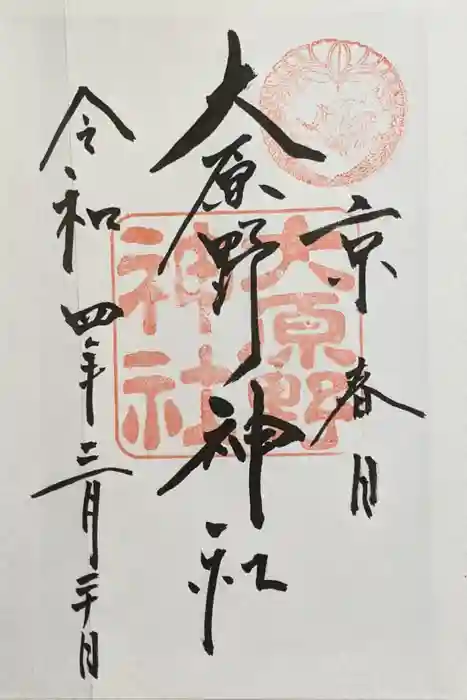 京春日
大原野神社
令和四年三月二十日
大原野
神社